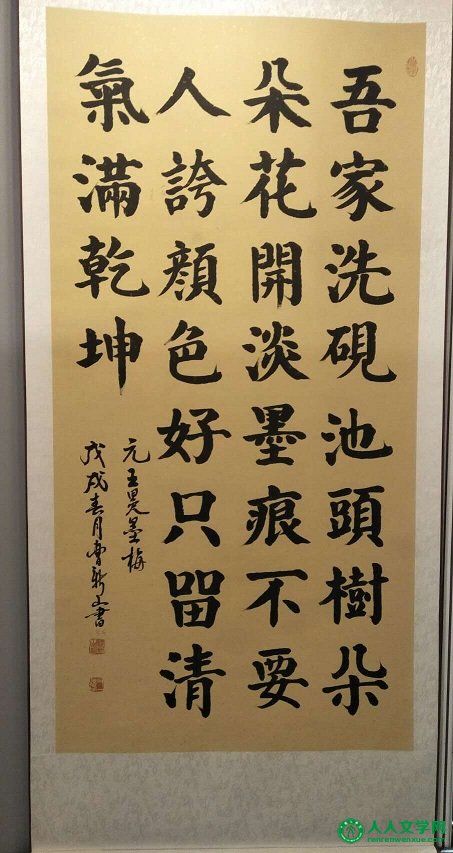 吾家洗硯池頭樹朵
朵花開淡墨痕不要
人誇顏色好只留清
氣滿乾坤
元王冕墨梅
戊戌春月曹新書
人人文学网
renrenwenxue.com